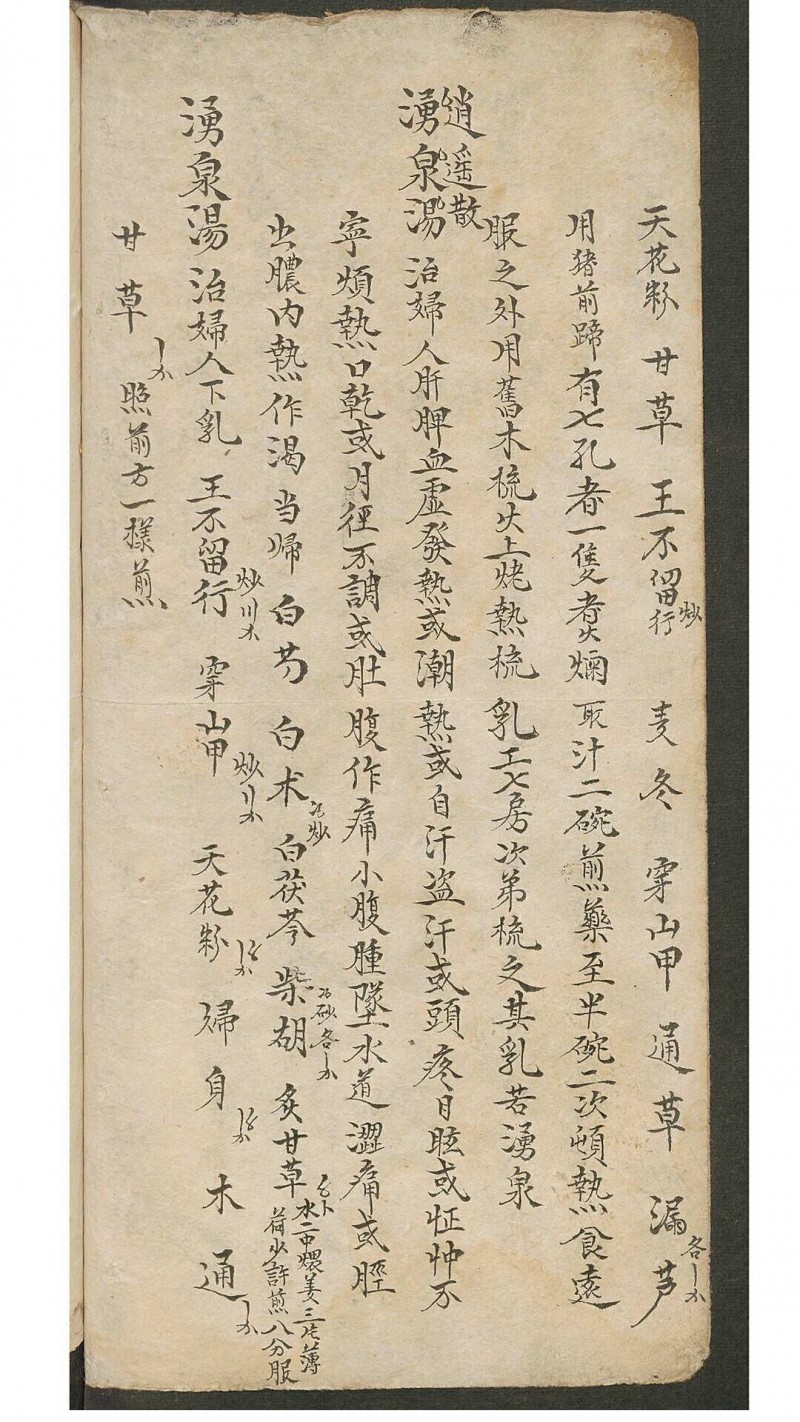 天花粉 甘草 王不留行 炒 麦冬 穿山甲 通草 漏芦 各
用猪前蹄有七孔者一隻煮爛取汁二碗煎藥至半碗二次頓熱食遠
服之外用舊木梳火上烤熱梳乳上七房次弟梳之其乳若湧泉
逍遥散
湧泉湯 治婦人肝脾血虚發熱或潮熱或自汗盗汗或頭疼目眩或怔忡不
寧煩熱口乾或月徑不調或肚腹作痛小腹腫墜水道澀痛或脛
出膿内熱作渴 当歸 白芍 白术 炒 白茯苓 柴胡 各 炙甘草 水二中煨姜三片薄
荷少許煎八分服
湧泉湯 治婦人下乳 王不留行 炒 穿山甲 炒 天花粉 歸身 木通
甘草 照前方一樣煎